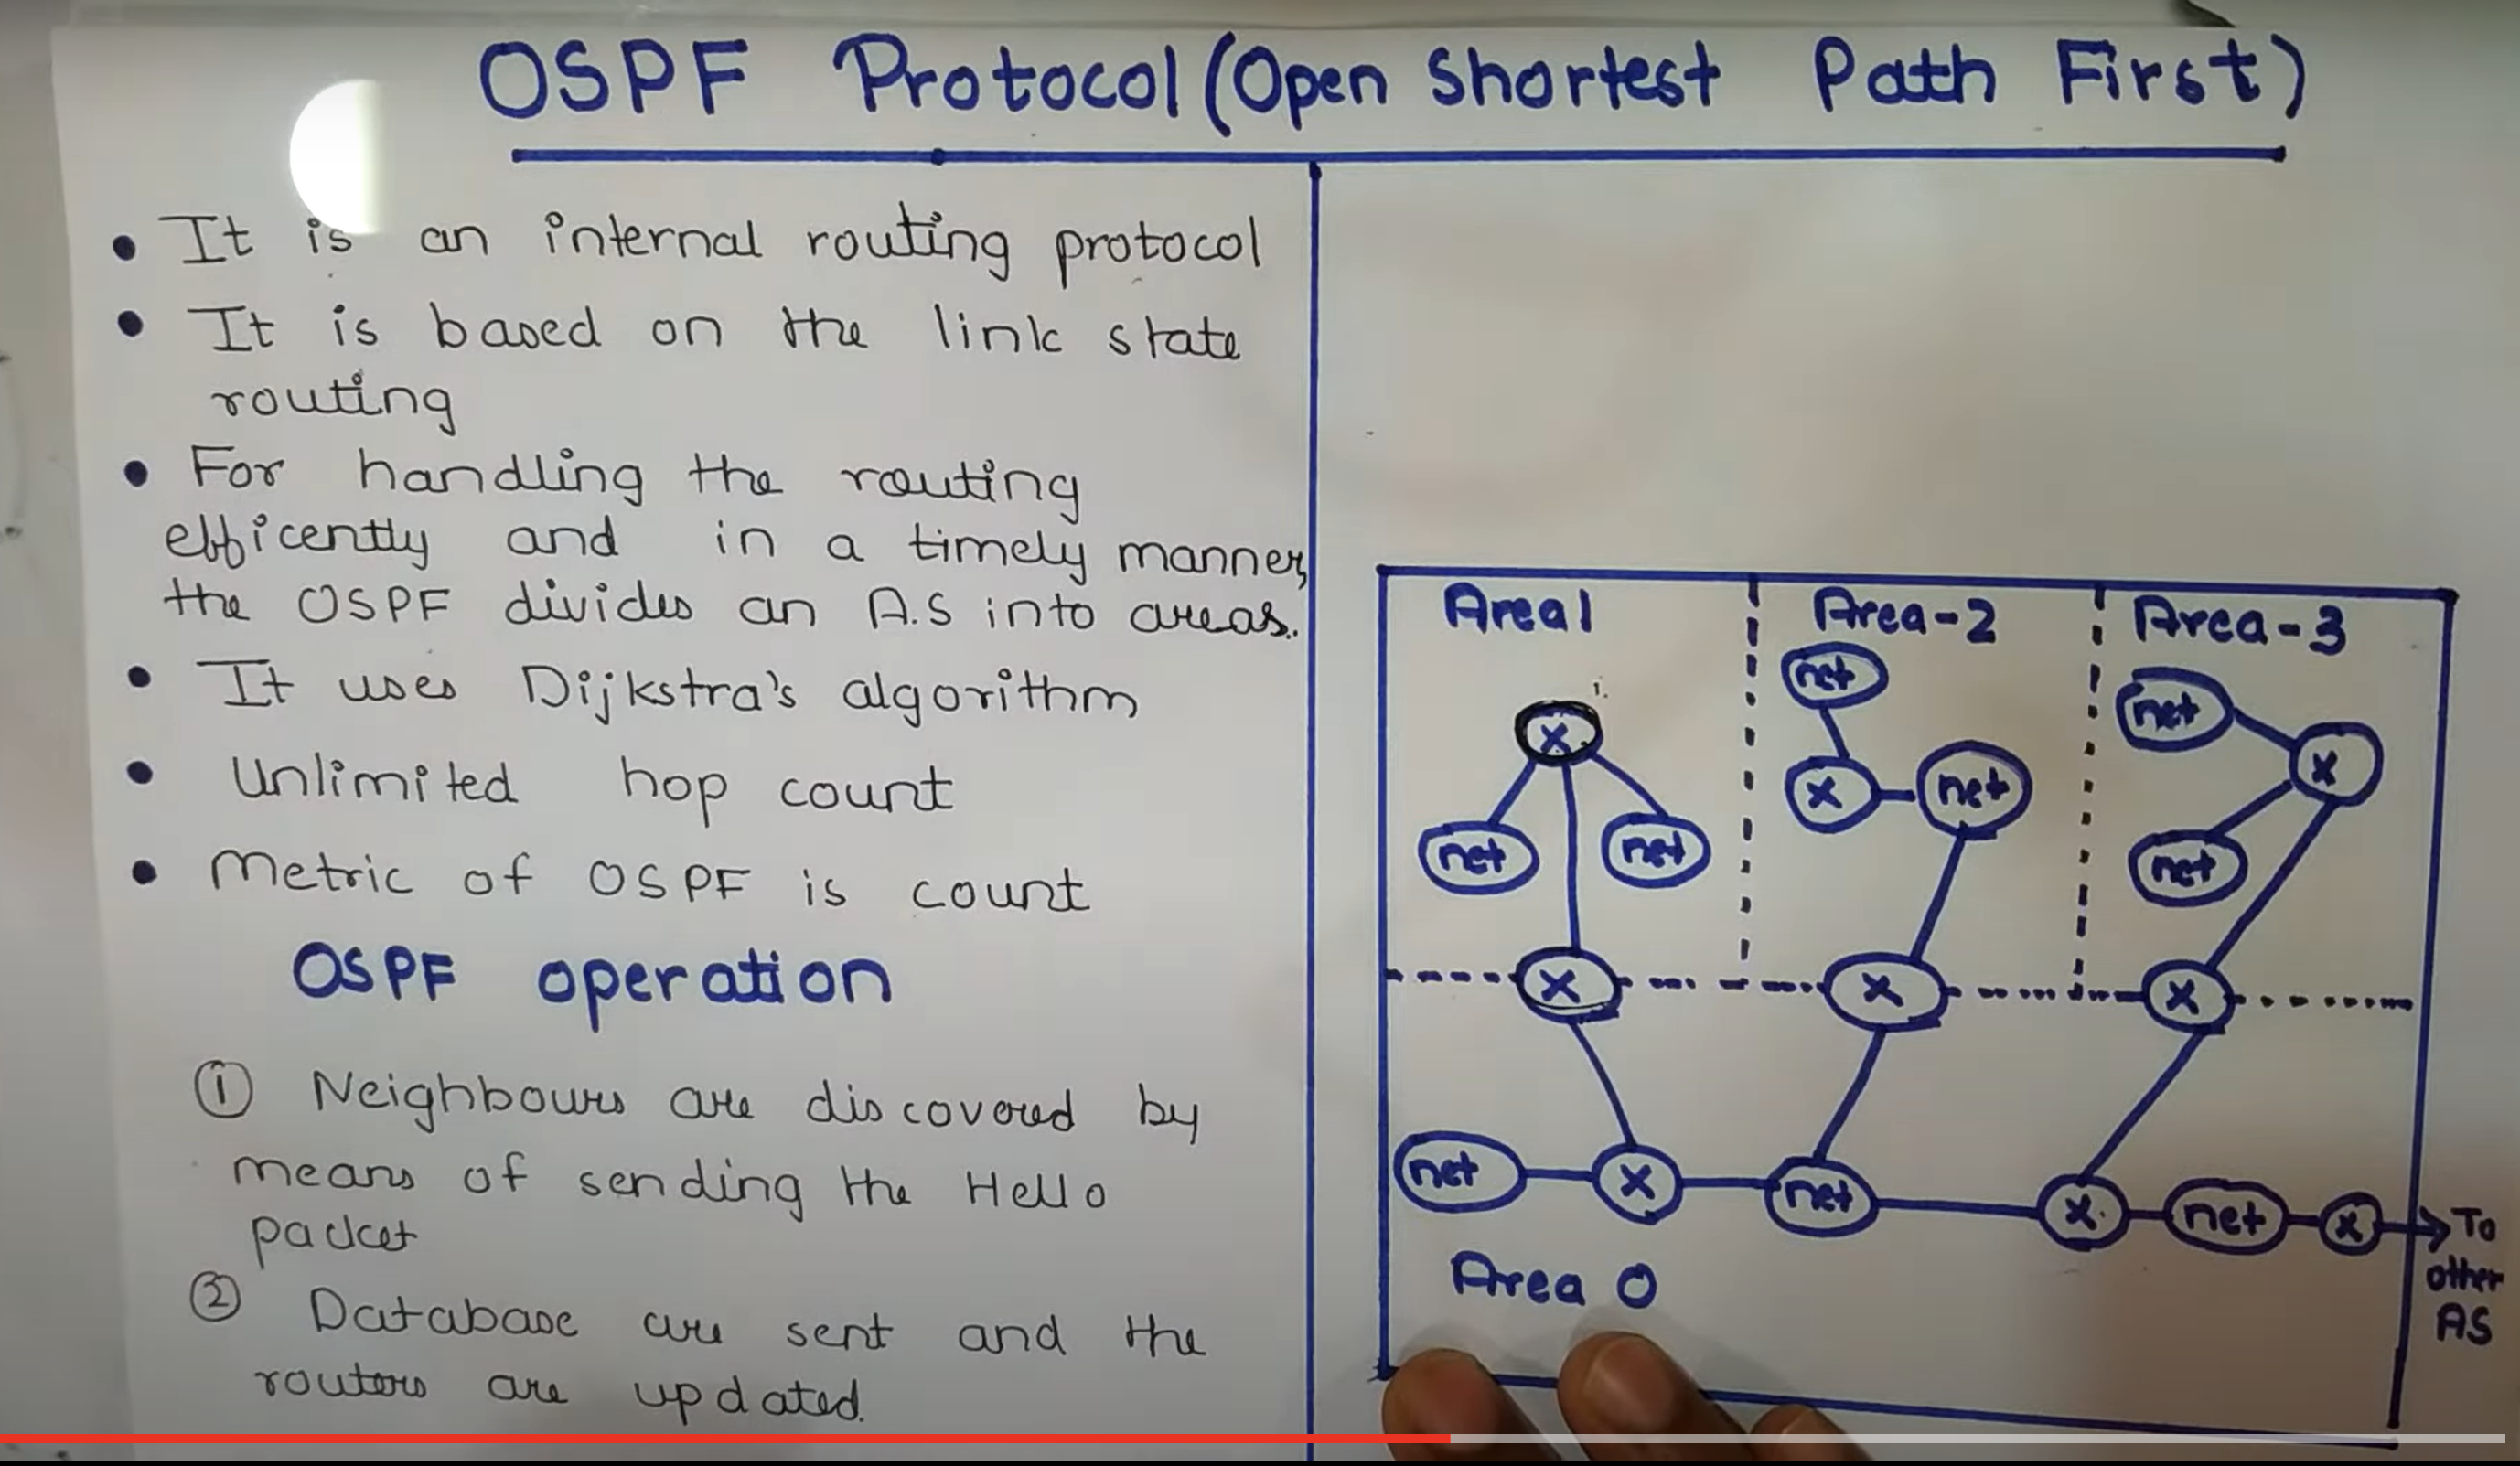 OSPF Protocol (Open Shortest Path First)
• It is an internal routing protocol
• It is based on the link state
routing
• For handling the routing
efficently and in a timely manner,
the OSPF divides an A.S into areas.
• It uses Dijkstra's algorithm
• Unlimited hop count
• Metric of OSPF is count
OSPF operation
① Neighbours are discovered by
means of sending the Hello
packet
② Database are sent and the
routers are updated.
Area 1
Area-2
Area-3
net
net
x
x
x
net
net
net
net
x
x
x
net
x
net
x
net
x
To
other
AS
Area 0